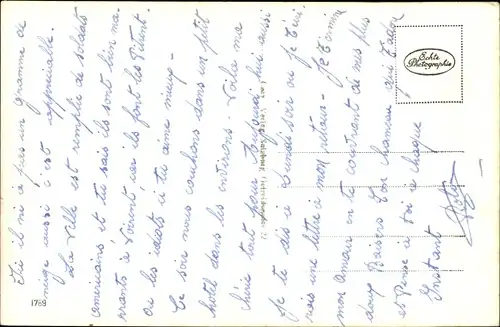 Ici il n'i a pas un gramme de
neige aussi c'est appréciable.
La ville est remplie de soldats
américains et tu sais ils sont bien ma-
rrants à voir car ils font les Pitant
ou les idiots si tu aime mieux -
Ce soir nous couchons dans un ptit
hotel dans les environs. Voila ma
chérie tout pour aujourd'hui aussi
Je te dis à lundi soir ou je t'écri-
rais une lettre à mon retour - Je termine
mon amour en te couvrant de mes plus
doux Baisers Ton chameau qui t'adore
et Pense à toi à chaque
Instant
Echte
Photographie
1789